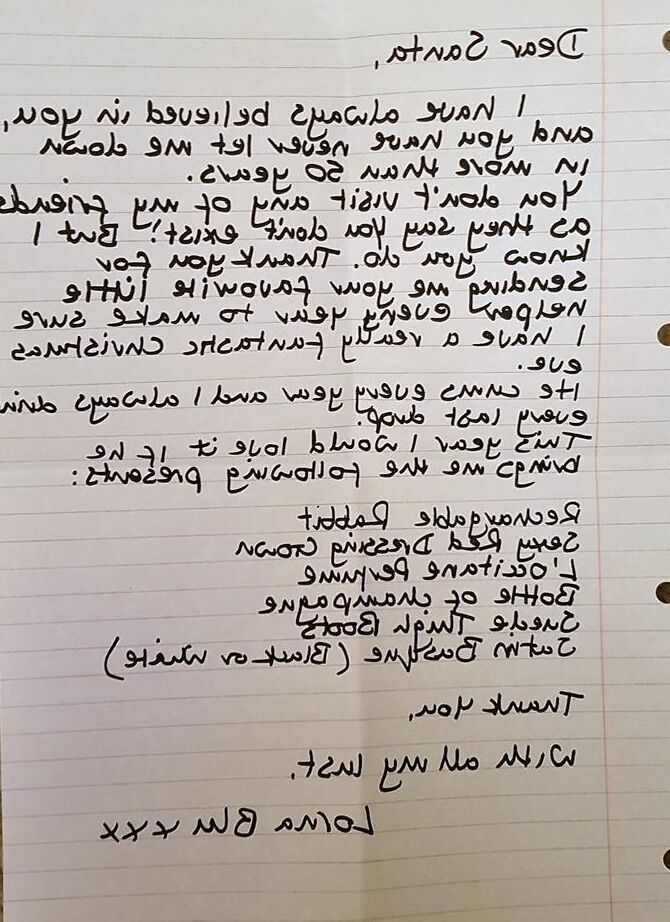 Dear Santa,
I have always believed in you,
and you have never let me down
in more than 50 years.
You don't visit any of my friends
as they say you don't exist! But I
know you do. Thank you for
sending me your favourite little
helper every year to make sure
I have a really fantastic Christmas
eve.
He cums every year and I always
every last drop.
This year I would love it if he
brings me the following presents:
Rechargable Rabbit
Sexy Red Dressing Gown
L'occitane Perfume
Bottle of champagne
Suede Thigh Boots
Satin Basque (Black or white)
Thank you.
With all my lust.
Lorna Blu xxx